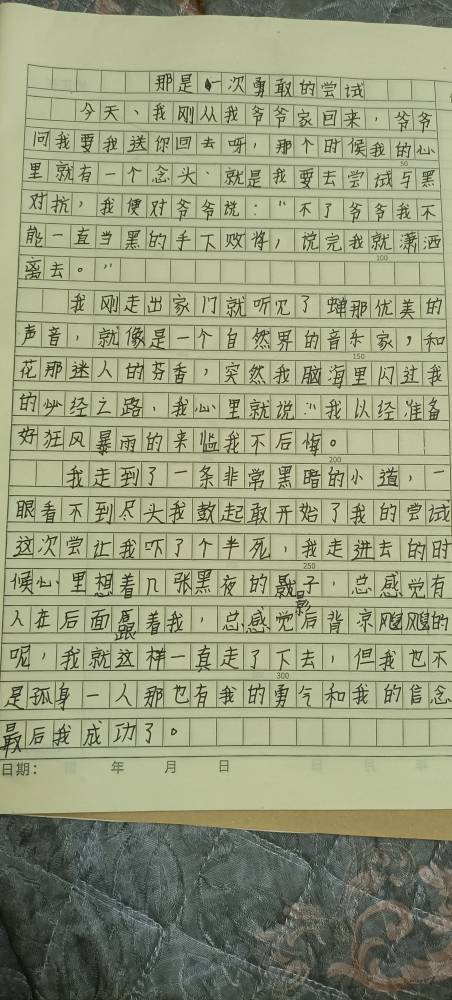 那是一次勇敢的尝试
今天、我刚从我爷爷家回来，爷爷
问我要我送你回去呀，那个时候我的心
50
里就有一个念头、就是我要去尝试与黑
对抗，我便对爷爷说：“不了爷爷我不
能一直当黑的手下败将，说完我就潇洒
100
离去。”
我刚走出家门就听见了蝉那优美的
声音，就像是一个自然界的音乐家，和
150
花那迷人的芬香，突然我脑海里闪过我
的必经之路，我心里就说：“我以经准备
好狂风暴雨的来临我不后悔。
200
我走到了一条非常黑暗的小道，一
眼看不到尽头我鼓起敢开始了我的尝试
这次尝让我吓了个半死，我走进去的时
250
候心里想着几张黑夜的影子，总感觉有
人在后面跟着我，总感觉后背凉飕飕的
呢，我就这样一真走了下去，但我也不
300
是孤身一人那也有我的勇气和我的信念
最后我成功了。
日期： 年 月 日